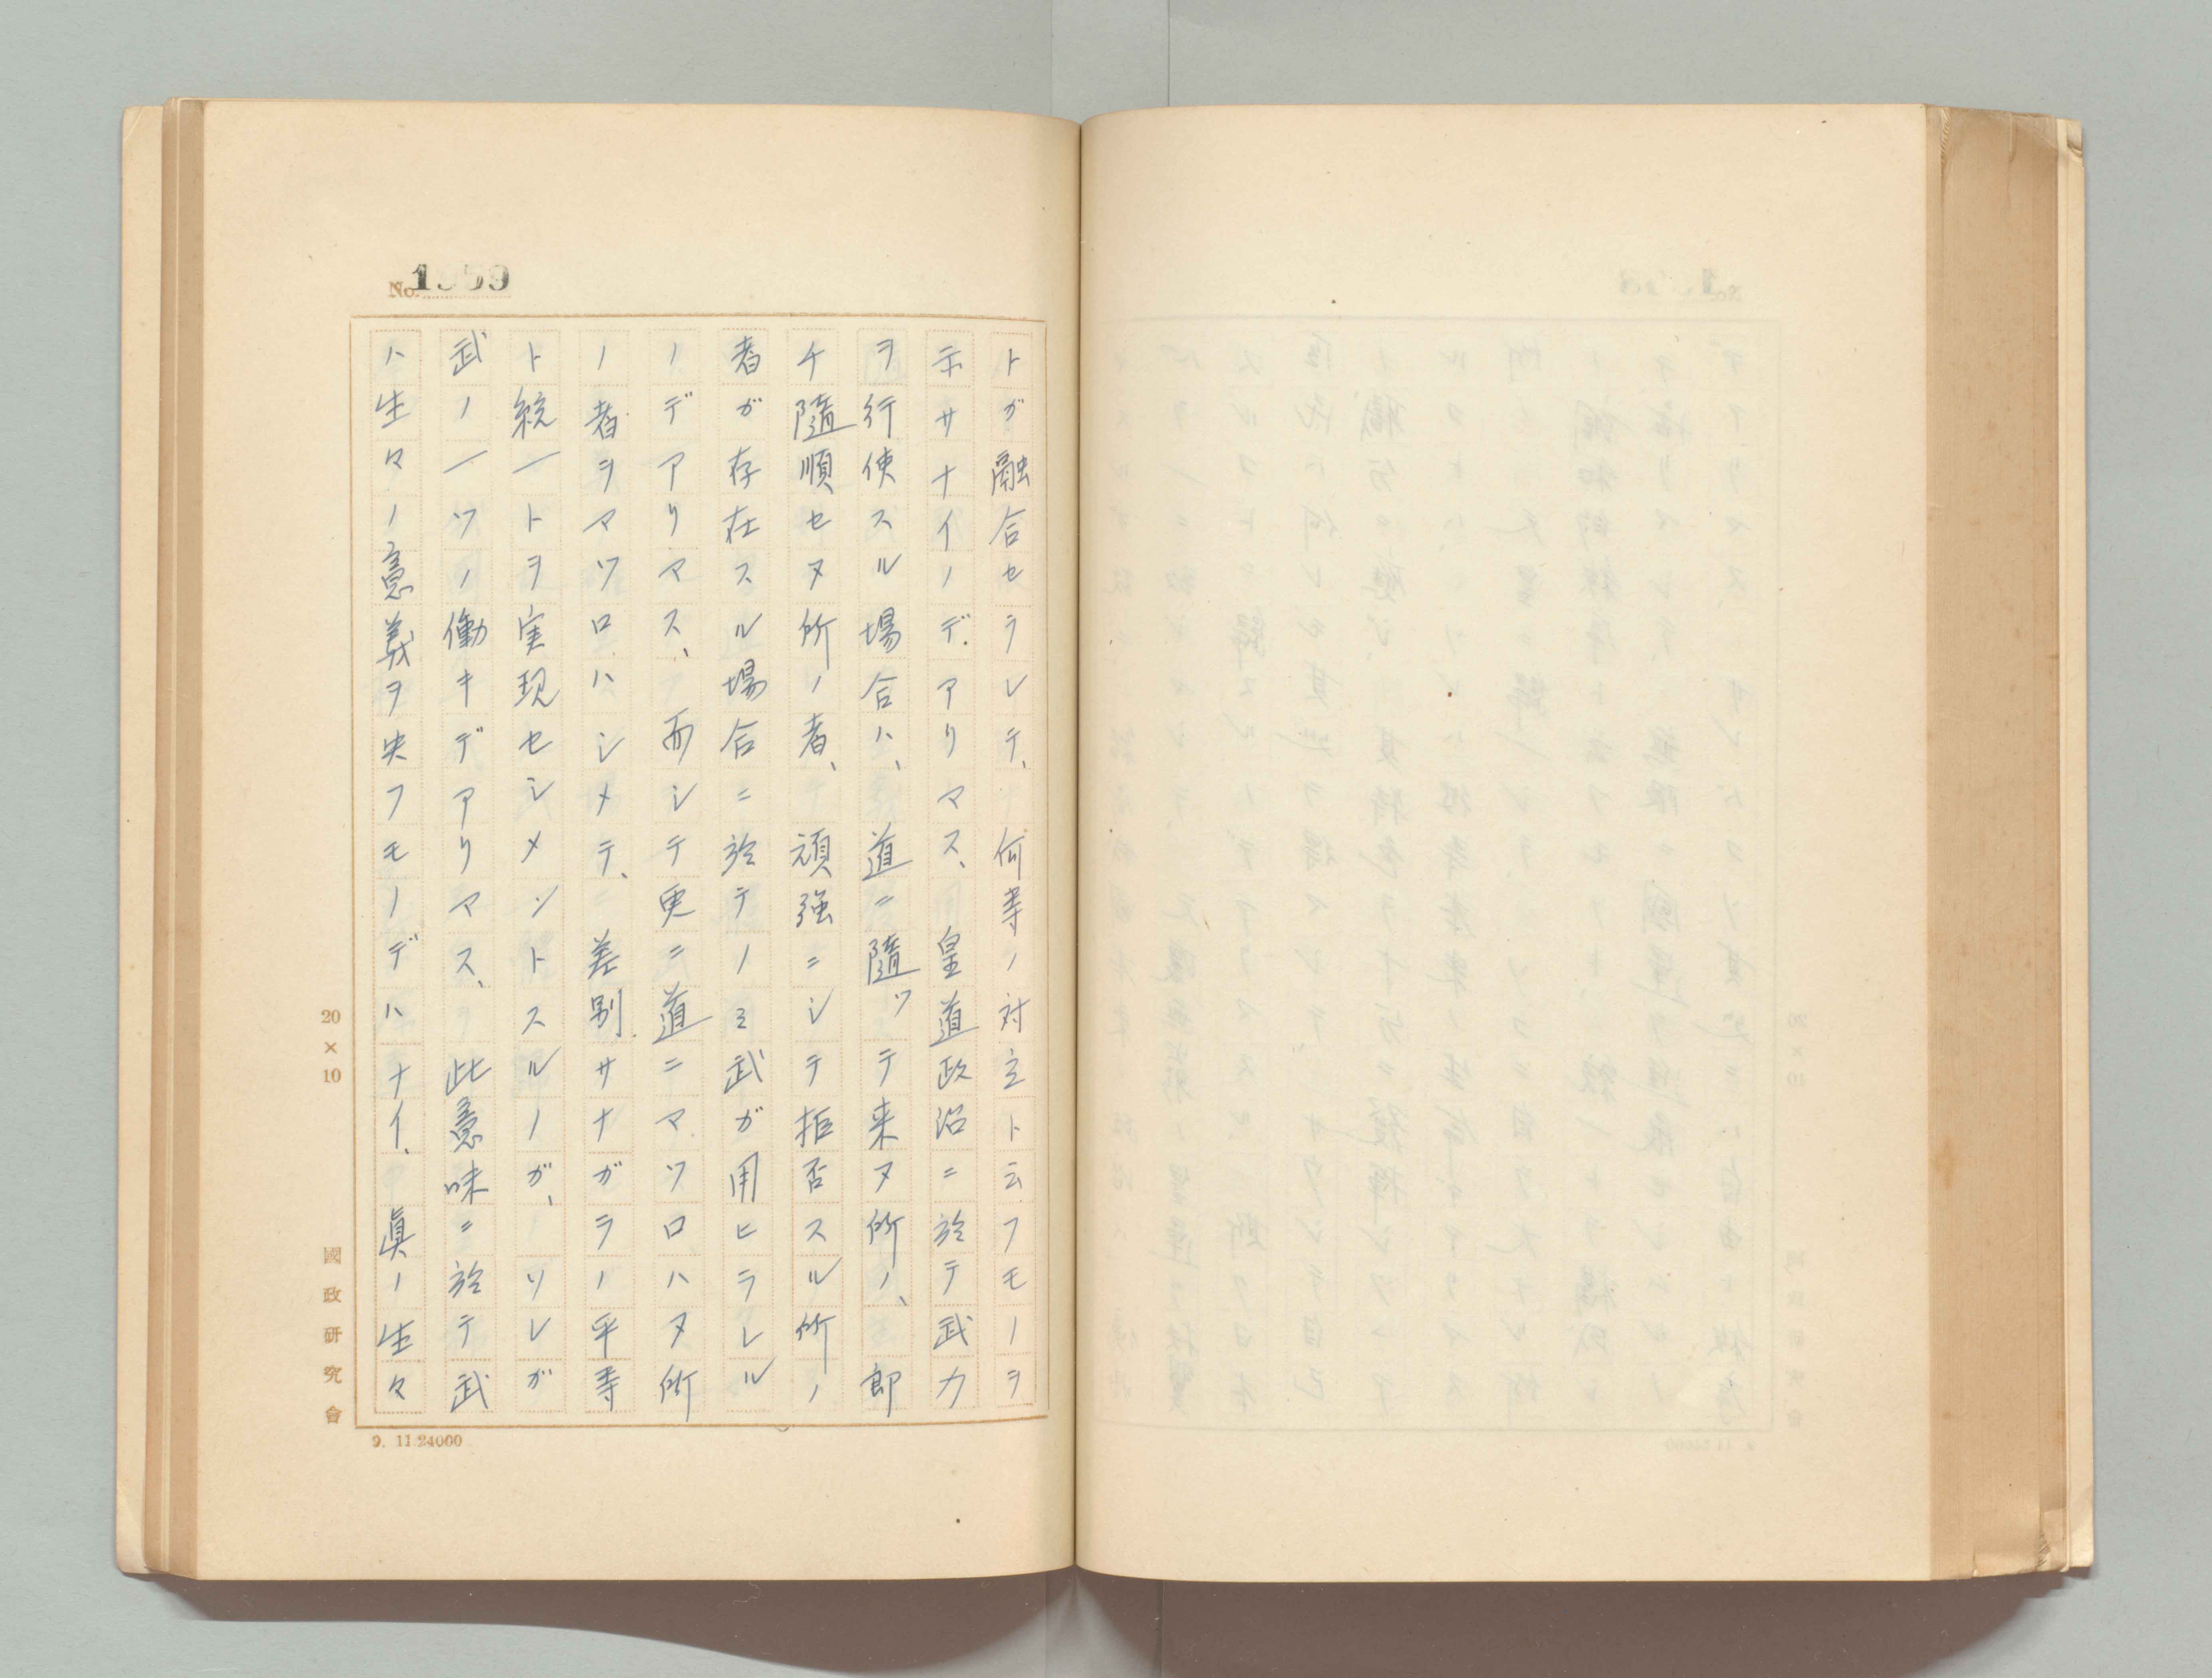 No. 1959
トガ融合セラレテ、何等ノ対立ト云フモノヲ
示サナイノデアリマス、皇道政治ニ於テ武力
ヲ行使スル場合ハ、道ニ隨ツテ来ヌ所ノ、即
チ隨順セヌ所ノ者、頑強ニシテ拒否スル所ノ
者ガ存在スル場合ニ於テノミ武ガ用ヒラレル
ノデアリマス、而シテ更ニ道ニマツロハヌ所
ノ者ヲマツロハシメテ、差別サナガラノ平等
ト統一トヲ実現セシメントスルノガ、ソレガ
武ノ一ツノ働キデアリマス、此意味ニ於テ武
ハ生々ノ意義ヲ失フモノデハナイ、眞ノ生々
20×10
國政研究會
9. 11.24000